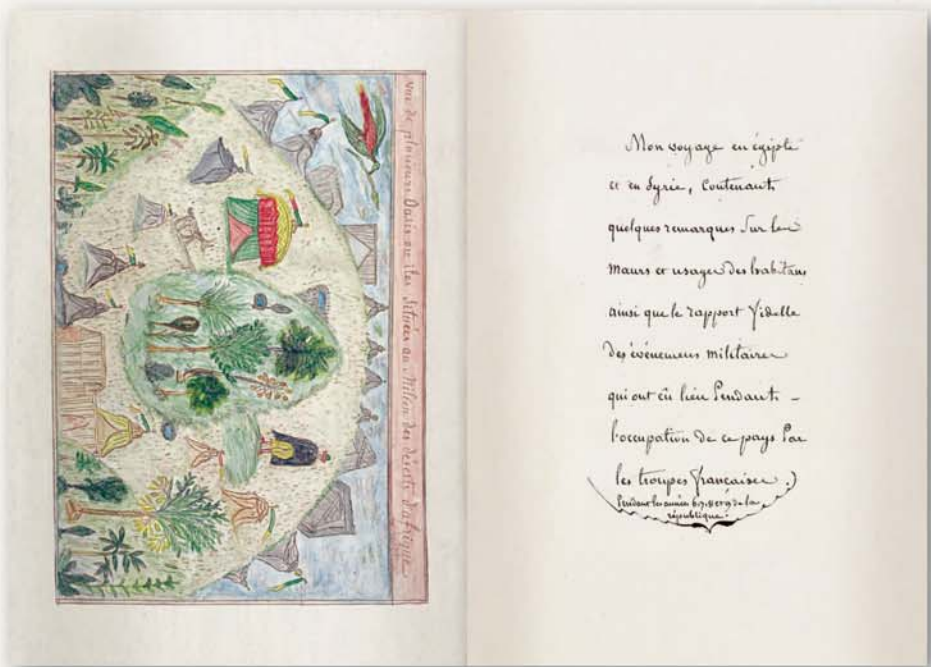 Vue de plusieurs Oasis ou iles Situées au Milieu des déserts d'afrique
Mon voyage en égipte
et en Syrie, Contenant
quelques remarques Sur les
Mœurs et usages des habitans
ainsi que le rapport fidelle
des événemens militaires
qui ont eû lieu Pendant -
l'occupation de ce pays Par
les troupes françaises.)
Pendant les années 6.7.8 et 9 de la
république.